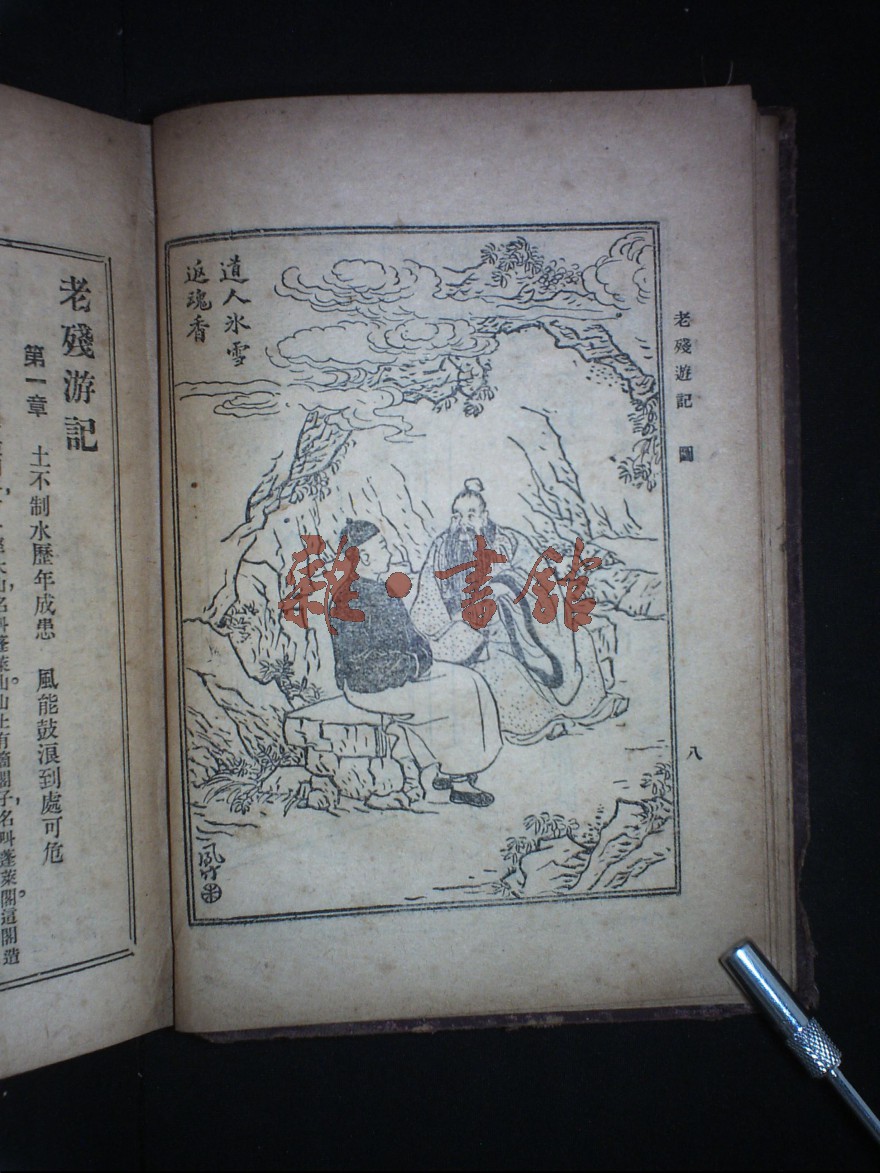 老殘遊記　圖
八
道人氷雪
返魂香
雜·書館
老殘游記
第一章　土不制水歷年成患　風能鼓浪到處可危
大山，名叫蓬萊山。山上有箇閣子，名叫蓬萊閣。這閣造